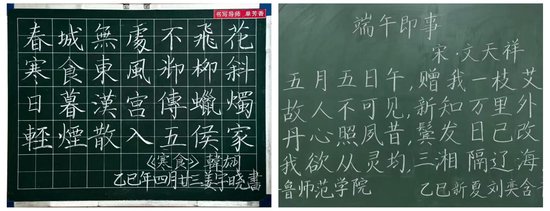 书写导师 单芳香
春城無處不飛花
寒食東風御柳斜
日暮漢宮傳蠟燭
輕煙散入五侯家
《寒食》韓翃
乙巳年四月廿三姜子晓書
端午即事
宋·文天祥
五月五日午，赠我一枝艾
故人不可见，新知万里外
丹心照夙昔，鬓发日已改
我欲从灵均，三湘隔辽海
鲁师范学院
乙巳新夏刘奕含